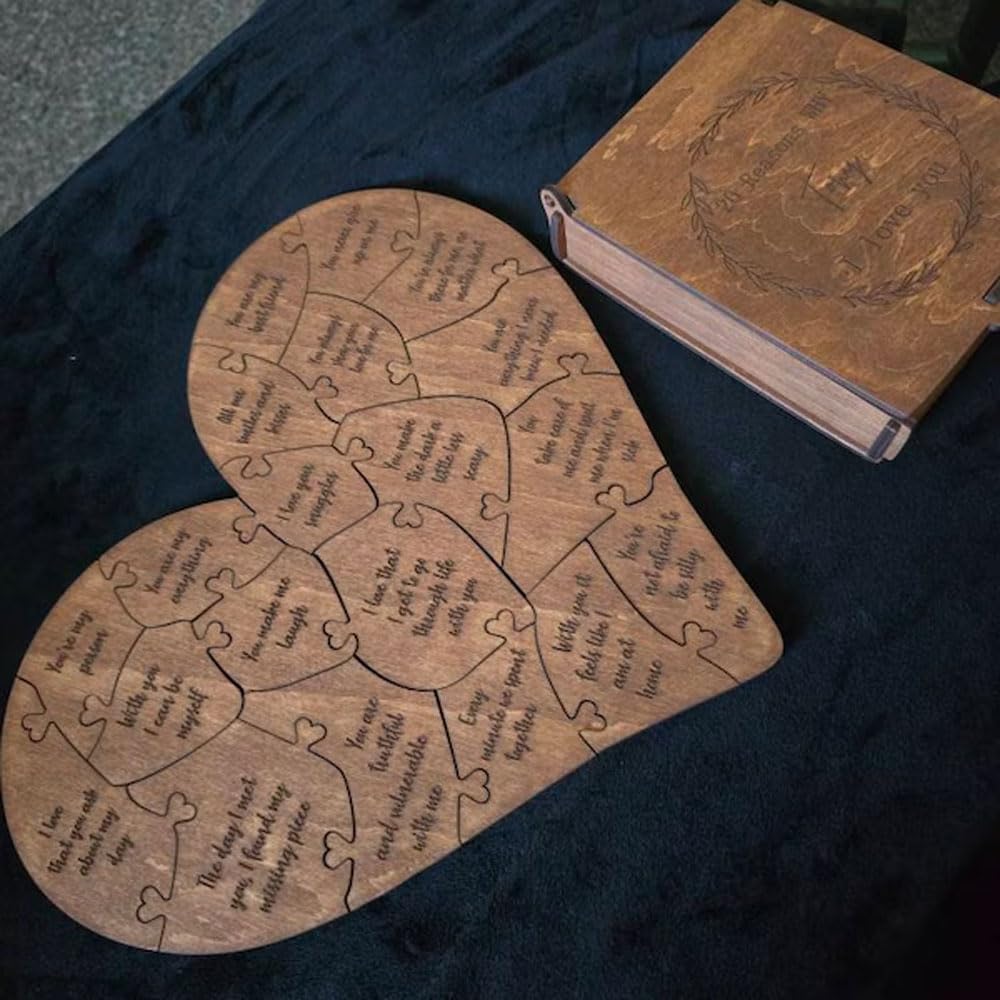 20 Reasons why
I love you
You never give
up on me
You're always
there for me no
matter what
You are my
bestfriend
You always
keep your
You are
everything I never
knew I needed
All our
and
kisses
You make
the dark a
little less
scary
You
take care of
me and spoil
me when I'm
sick
I love your
snuggles
You are my
everything
You're
not afraid to
be silly
with
me
I love that
I get to go
through life
with you
You make me
laugh
With you it
feels like I
am at
home
You're my
person
With you
I can be
myself
Every
minute we spent
together
You are
truthful
and vulnerable
with me
I love
that you ask
about my
day
The day I met
you, I found my
missing piece